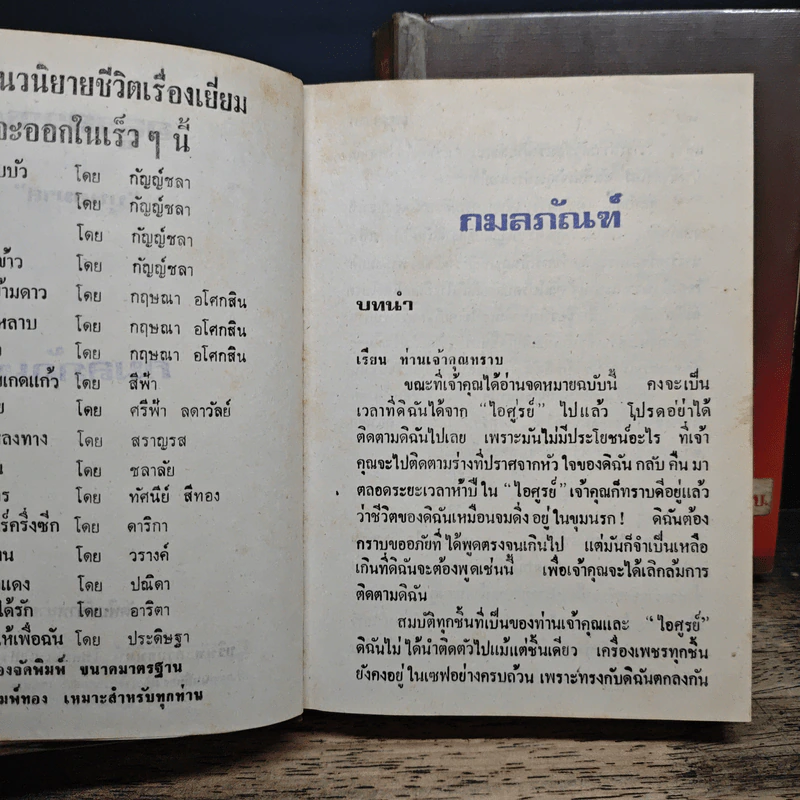 นวนิยายชีวิตเรื่องเยี่ยม
จะออกในเร็ว ๆ นี้
บบัว โดย กัญญ์ชลา
โดย กัญญ์ชลา
โดย กัญญ์ชลา
ข้าว โดย กัญญ์ชลา
ข้ามดาว โดย กฤษณา อโศกสิน
หลาบ โดย กฤษณา อโศกสิน
โดย กฤษณา อโศกสิน
เกดแก้ว โดย สีฟ้า
ย โดย ศรีฟ้า ลดาวัลย์
ลงทาง โดย สราญรส
น โดย ชลาลัย
ร โดย ทัศนีย์ สีทอง
ร์ครึ่งซีก โดย ดาริกา
น โดย วรางค์
แดง โดย ปณิดา
ได้รัก โดย อาริตา
ให้เพื่อฉัน โดย ประดิษฐา
องจัดพิมพ์ ขนาดมาตรฐาน
มพ์ทอง เหมาะสำหรับทุกท่าน
กมลภัณฑ์
บทนำ
เรียน ท่านเจ้าคุณทราบ
ขณะที่เจ้าคุณได้อ่านจดหมายฉบับนี้ คงจะเป็น
เวลาที่ดิฉันได้จาก “ไอศูรย์” ไปแล้ว โปรดอย่าได้
ติดตามดิฉันไปเลย เพราะมันไม่มีประโยชน์อะไร ที่เจ้า
คุณจะไปติดตามร่างที่ปราศจากหัวใจของดิฉัน กลับ คืน มา
ตลอดระยะเวลาห้าปี ใน “ไอศูรย์” เจ้าคุณก็ทราบดีอยู่แล้ว
ว่าชีวิตของดิฉันเหมือนจมดิ่ง อยู่ ในขุมนรก! ดิฉันต้อง
กราบขออภัยที่ ได้พูดตรงจนเกินไป แต่มันก็จำเป็นเหลือ
เกินที่ดิฉันจะต้องพูดเช่นนี้ เพื่อเจ้าคุณจะได้เลิกล้มการ
ติดตามดิฉัน
สมบัติทุกชิ้นที่เป็นของท่านเจ้าคุณและ “ไอศูรย์”
ดิฉันไม่ ได้นำติดตัวไปแม้แต่ชิ้นเดียว เครื่องเพชรทุกชิ้น
ยังคงอยู่ ในเซฟอย่างครบถ้วน เพราะทรงกับดิฉันตกลงกัน
บ.